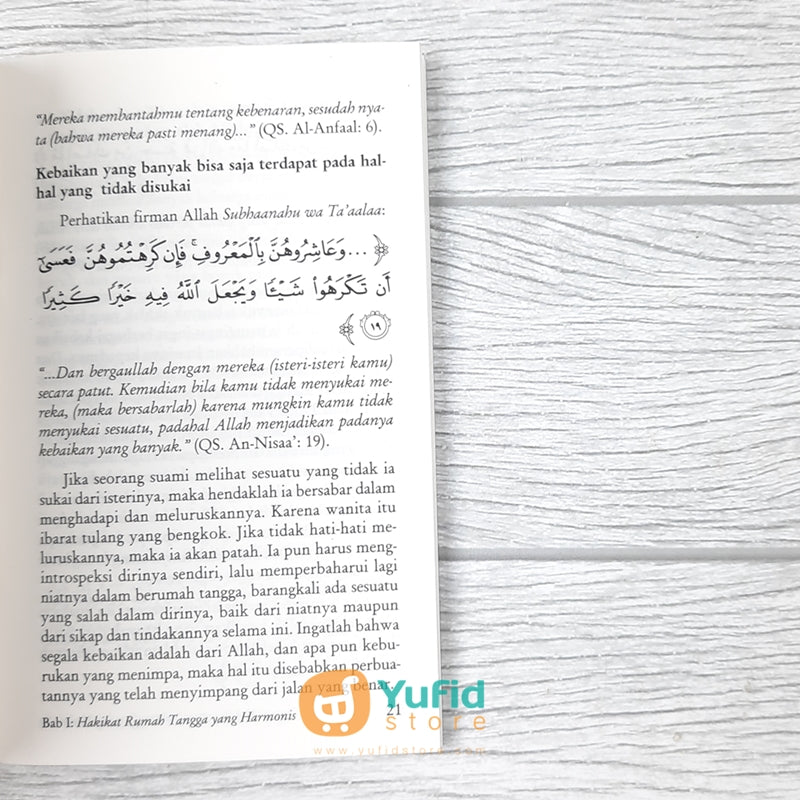 “Mereka membantahmu tentang kebenaran, sesudah nya-
ta (bahwa mereka pasti menang)...” (QS. Al-Anfaal: 6).
Kebaikan yang banyak bisa saja terdapat pada hal-
hal yang tidak disukai
Perhatikan firman Allah Subhaanahu wa Ta’aalaa:
﴿ ... وَعَاشِرُوهُنَّ بِٱلْمَعْرُوفِ ۚ فَإِن كَرِهْتُمُوهُنَّ فَعَسَىٰٓ
أَن تَكْرَهُوا۟ شَيْـًٔا وَيَجْعَلَ ٱللَّهُ فِيهِ خَيْرًا كَثِيرًا
١٩ ﴾
“...Dan bergaullah dengan mereka (isteri-isteri kamu)
secara patut. Kemudian bila kamu tidak menyukai me-
reka, (maka bersabarlah) karena mungkin kamu tidak
menyukai sesuatu, padahal Allah menjadikan padanya
kebaikan yang banyak.” (QS. An-Nisaa’: 19).
Jika seorang suami melihat sesuatu yang tidak ia
sukai dari isterinya, maka hendaklah ia bersabar dalam
menghadapi dan meluruskannya. Karena wanita itu
ibarat tulang yang bengkok. Jika tidak hati-hati me-
luruskannya, maka ia akan patah. Ia pun harus meng-
introspeksi dirinya sendiri, lalu memperbaharui lagi
niatnya dalam berumah tangga, barangkali ada sesuatu
yang salah dalam dirinya, baik dari niatnya maupun
dari sikap dan tindakannya selama ini. Ingatlah bahwa
segala kebaikan adalah dari Allah, dan apa pun kebu-
rukan yang menimpa, maka hal itu disebabkan perbua-
tannya yang telah menyimpang dari jalan yang benar.
Bab I: Hakikat Rumah Tangga yang Harmonis 21
Yufid
store
www.yufidstore.com